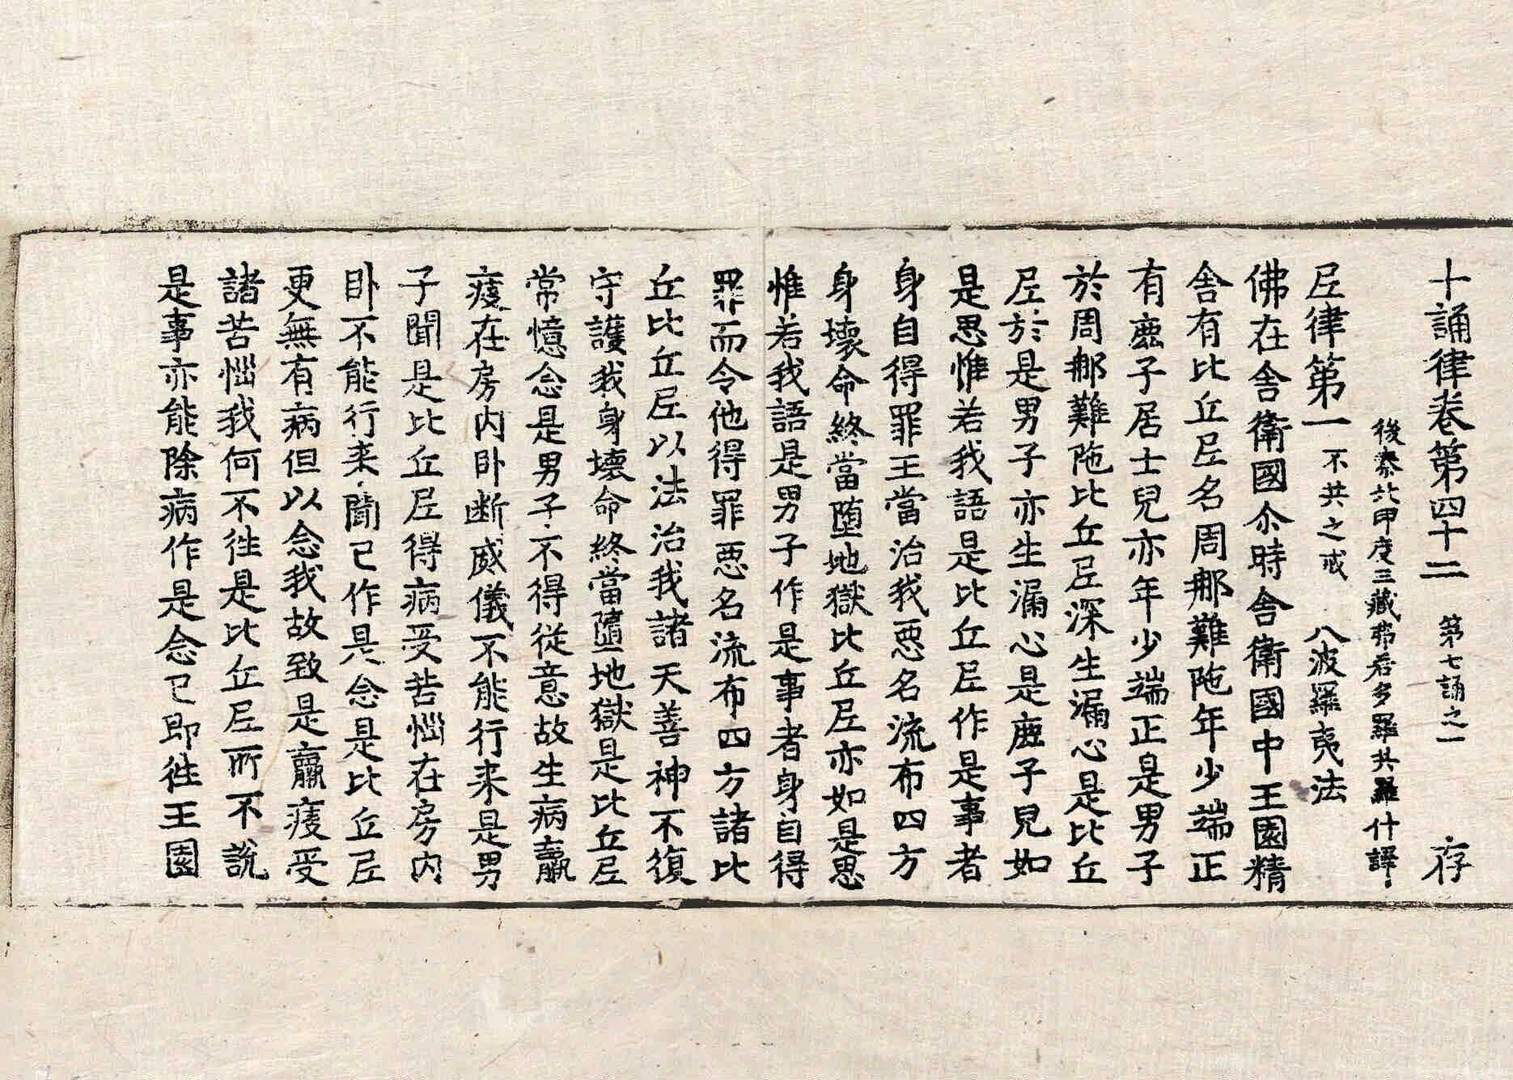 十誦律卷第四十二 第七誦之一 存
後秦北印度三藏弗若多羅共羅什譯
尼律第一 不共之戒 八波羅夷法
佛在舍衛國尒時舍衛國中王園精
舍有比丘尼名周那難陁年少端正
有鹿子居士兒亦年少端正是男子
於周那難陁比丘尼深生漏心是比丘
尼於是男子亦生漏心是鹿子兒如
是思惟若我語是比丘尼作是事者
身自得罪王當治我惡名流布四方
身壞命終當墮地獄比丘尼亦如是思
惟若我語是男子作是事者身自得
罪而令他得罪惡名流布四方諸比
丘比丘尼以法治我諸天善神不復
守護我身壞命終當墮地獄是比丘尼
常憶念是男子不得從意故生病羸
瘦在房內卧断威儀不能行来是男
子聞是比丘尼得病受苦惱在房内
卧不能行来聞已作是念是比丘尼
更無有病但以念我故致是羸瘦受
諸苦惱我何不往是比丘尼所不說
是事亦能除病作是念已即往王園